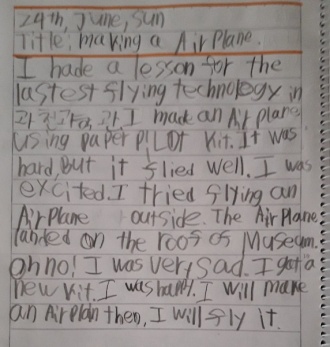 24th, June, sun
Title: making a AirPlane.
I hade a lesson for the
lastest flying technology in
과천과학관 I made an Air plane
using paper PILOT kit. It was
hard, but it flied well. I was
excited. I tried flying an
AirPlane outside. The AirPlane
landed on the roof of Museum.
oh no! I was very sad. I got a
new kit. I was happy. I will make
an AirPlan then, I will fly it.